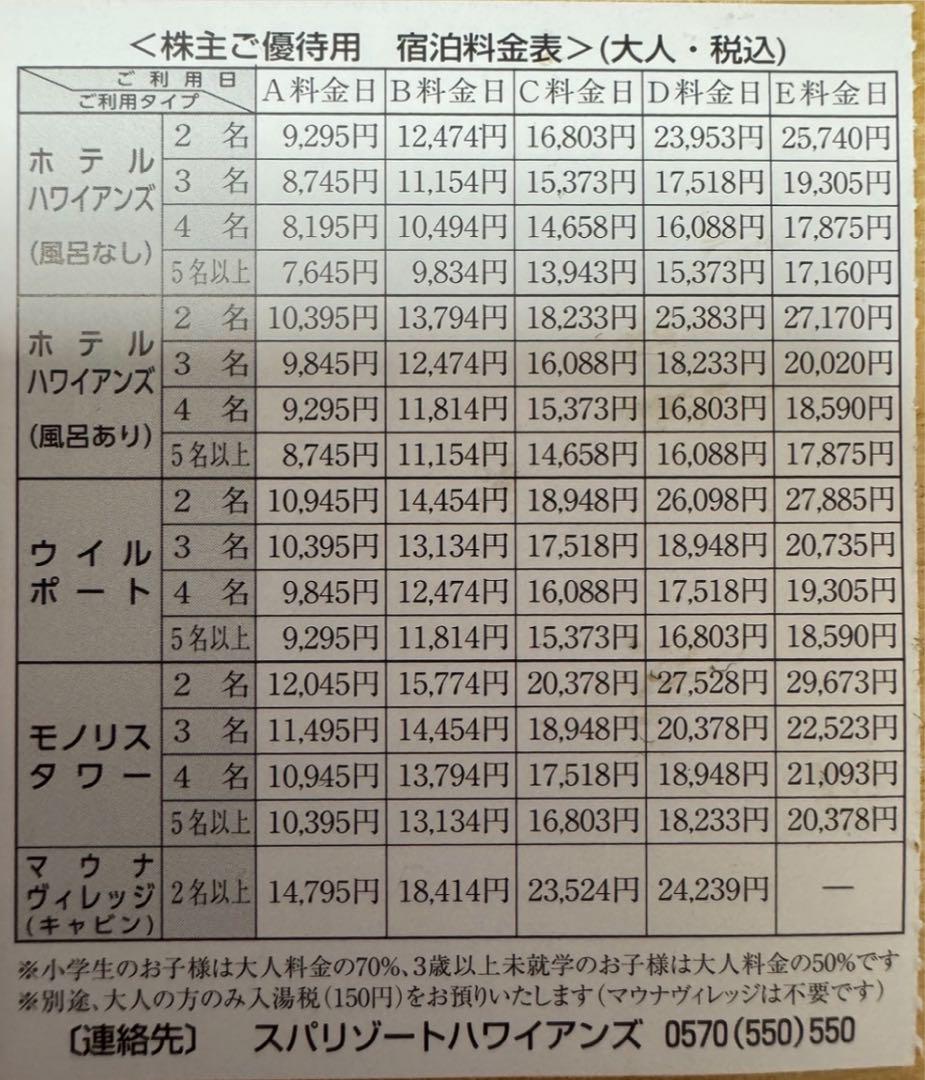 ＜株主ご優待用　宿泊料金表＞(大人・税込)
ご利用日
ご利用タイプ
A料金日 B料金日 C料金日 D料金日 E料金日
ホテル
ハワイアンズ
(風呂なし)
2名 9,295円 12,474円 16,803円 23,953円 25,740円
3名 8,745円 11,154円 15,373円 17,518円 19,305円
4名 8,195円 10,494円 14,658円 16,088円 17,875円
5名以上 7,645円 9,834円 13,943円 15,373円 17,160円
ホテル
ハワイアンズ
(風呂あり)
2名 10,395円 13,794円 18,233円 25,383円 27,170円
3名 9,845円 12,474円 16,088円 18,233円 20,020円
4名 9,295円 11,814円 15,373円 16,803円 18,590円
5名以上 8,745円 11,154円 14,658円 16,088円 17,875円
ウイル
ポート
2名 10,945円 14,454円 18,948円 26,098円 27,885円
3名 10,395円 13,134円 17,518円 18,948円 20,735円
4名 9,845円 12,474円 16,088円 17,518円 19,305円
5名以上 9,295円 11,814円 15,373円 16,803円 18,590円
モノリス
タワー
2名 12,045円 15,774円 20,378円 27,528円 29,673円
3名 11,495円 14,454円 18,948円 20,378円 22,523円
4名 10,945円 13,794円 17,518円 18,948円 21,093円
5名以上 10,395円 13,134円 16,803円 18,233円 20,378円
マウナ
ヴィレッジ
(キャビン)
2名以上 14,795円 18,414円 23,524円 24,239円 ―
※小学生のお子様は大人料金の70%、3歳以上未就学のお子様は大人料金の50%です
※別途、大人の方のみ入湯税(150円)をお預りいたします(マウナヴィレッジは不要です)
〔連絡先〕　スパリゾートハワイアンズ　0570(550)550